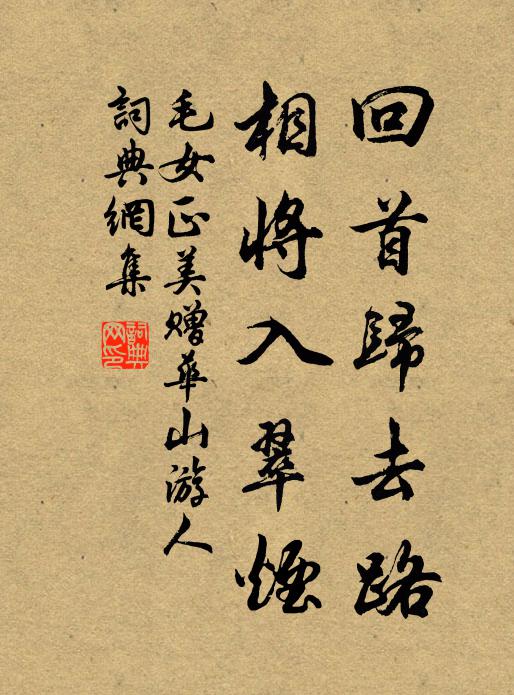 回首歸去路
相將入翠煙
毛女正美贈華山游人
詞典網集
詞典
网印